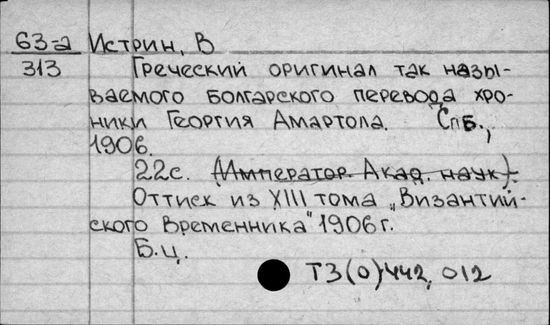 63-а Истрин, В
313 Греческий оригинал так назы-
ваемого болгарского перевода хро-
ники Георгия Амартола. Спб.,
1906.
22с. (Император. Акад. наук).
Оттиск из XIII тома „Византий-
ского Временника" 1906г.
Б.ц.
Т3(0)442, 012